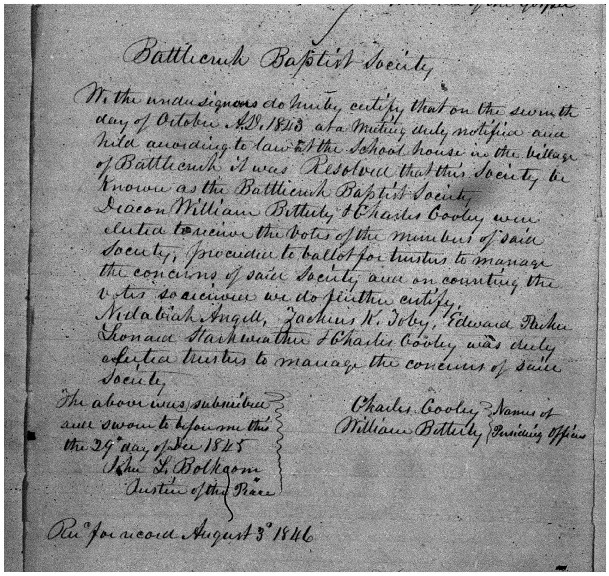 of the Gospel
Battlecreek Baptist Society
We the undersigners do hereby certify that on the seventh
day of October A.D. 1843 at a meeting duly notified and
held according to law at the school house in the village
of Battlecreek it was Resolved that this Society be
Known as the Battlecreek Baptist Society
Deacon William Betterly & Charles Cooley were
elected to receive the votes of the members of said
Society, procedie to ballot for trustees to manage
the concerns of said Society and on counting the
votes so received we do further certify,
Angell, Zacheus K. Toby, Edward Packer
Leonard Starkweather & Charles Cooley was duly
elected trustees to manage the concerns of said
Society
The above was subscribed
and sworn to before me this
the 29th day of Dec 1845
John L. Bolkcom
Justice of the Peace
Charles Cooley } Names of
William Betterly } Presiding Officers
Recd for record August 3d 1846